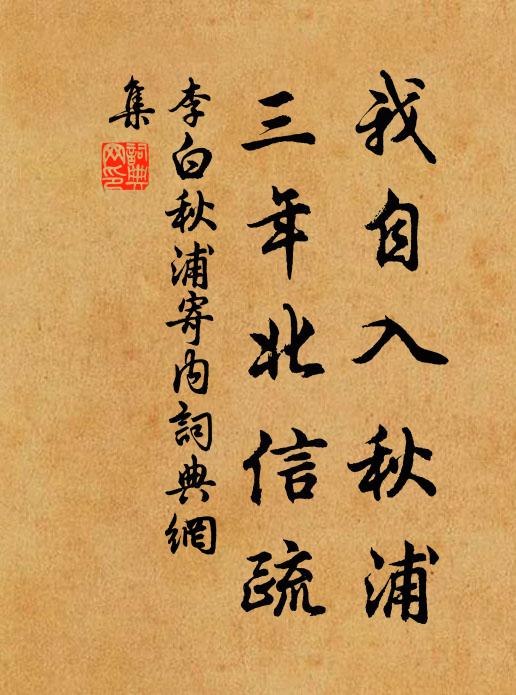 我自入秋浦
三年北信疏
李白秋浦寄内詞典網
集
詞典
網印